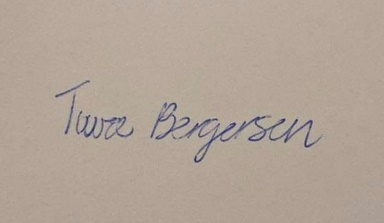 Tuva Bergersen